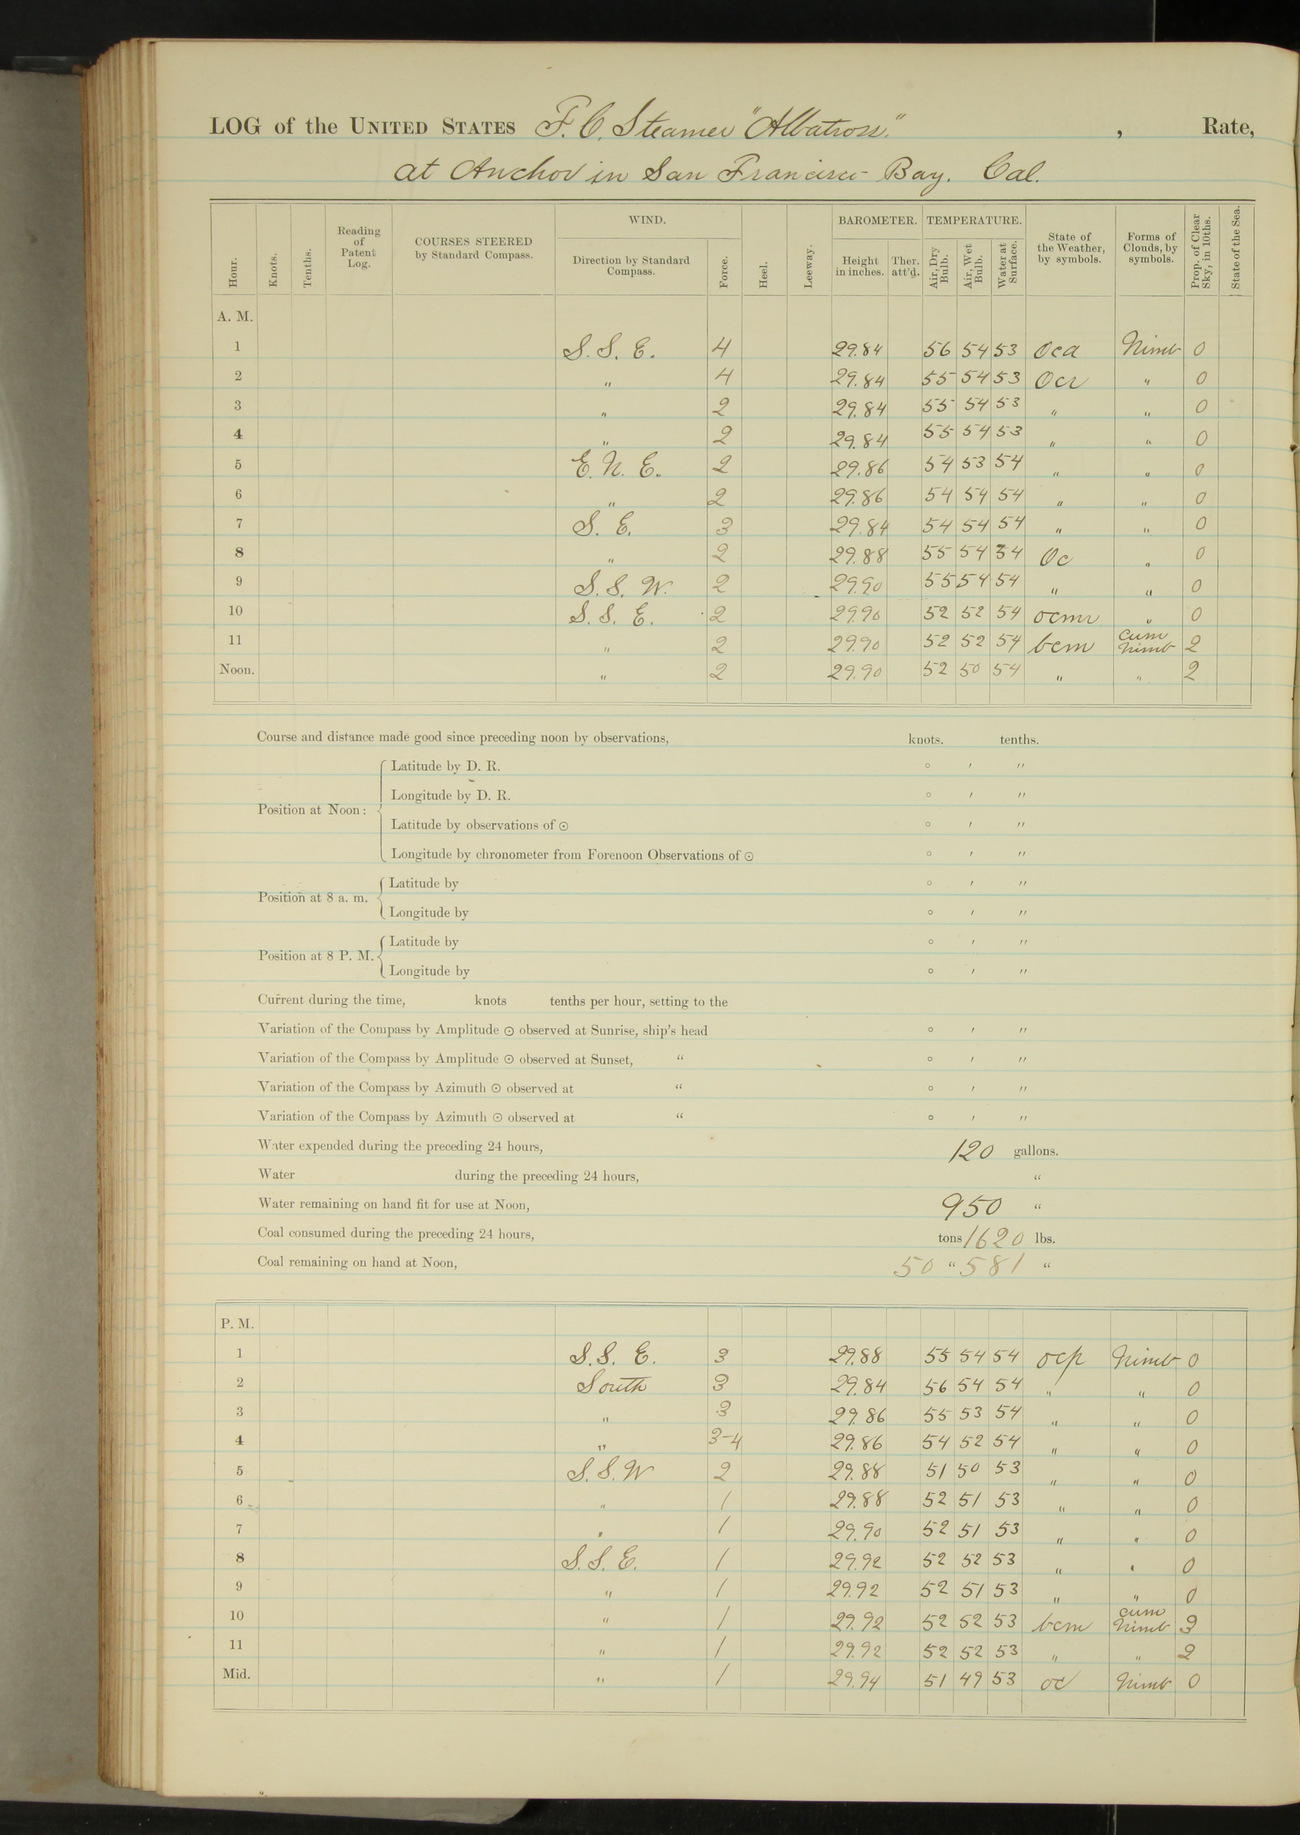 LOG of the UNITED STATES F. C. Steamer "Albatross." , Rate,
at Anchor in San Francisco Bay. Cal.
Hour. Knots. Tenths. Reading of Patent Log. COURSES STEERED by Standard Compass. WIND. Direction by Standard Compass. Force. Heel. Leeway. BAROMETER. Height in inches. Ther. att'd. TEMPERATURE. Air, Dry Bulb. Air, Wet Bulb. Water at Surface. State of the Weather, by symbols. Forms of Clouds, by symbols. Prop. of Clear Sky, in 10ths. State of the Sea.
A. M.
1 S. S. E. 4 29.84 56 54 53 Nimb 0
2 " 4 29.84 55 54 53 Ocr " 0
3 " 2 29.84 55 54 53 " " 0
4 " 2 29.84 55 54 53 " " 0
5 E. N. E. 2 29.86 54 53 54 " " 0
6 " 2 29.86 54 54 54 " " 0
7 S. E. 3 29.84 54 54 54 " " 0
8 " 2 29.88 55 54 34 Oc " 0
9 S. S. W. 2 29.90 55 54 54 " " 0
10 S. S. E. 2 29.90 52 52 54 ocmr " 0
11 " 2 29.90 52 52 54 bcm Cum Nimb 2
Noon. " 2 29.90 52 50 54 " " 2
Course and distance made good since preceding noon by observations, knots. tenths.
Position at Noon:
Latitude by D. R. ° ′ ″
Longitude by D. R. ° ′ ″
Latitude by observations of ☉ ° ′ ″
Longitude by chronometer from Forenoon Observations of ☉ ° ′ ″
Position at 8 a. m.
Latitude by ° ′ ″
Longitude by ° ′ ″
Position at 8 P. M.
Latitude by ° ′ ″
Longitude by ° ′ ″
Current during the time, knots tenths per hour, setting to the
Variation of the Compass by Amplitude ☉ observed at Sunrise, ship's head ° ′ ″
Variation of the Compass by Amplitude ☉ observed at Sunset, " ° ′ ″
Variation of the Compass by Azimuth ☉ observed at " ° ′ ″
Variation of the Compass by Azimuth ☉ observed at " ° ′ ″
Water expended during the preceding 24 hours, 120 gallons.
Water during the preceding 24 hours, "
Water remaining on hand fit for use at Noon, 950 "
Coal consumed during the preceding 24 hours, tons 1620 lbs.
Coal remaining on hand at Noon, 50 " 581 "
P. M.
1 S. S. E. 3 29.88 55 54 54 ocp Nimb 0
2 South 3 29.84 56 54 54 " " 0
3 " 3 29.86 55 53 54 " " 0
4 " 3-4 29.86 54 52 54 " " 0
5 S. S. W 2 29.88 51 50 53 " " 0
6 " 1 29.88 52 51 53 " " 0
7 " 1 29.90 52 51 53 " " 0
8 S. S. E. 1 29.92 52 52 53 " " 0
9 " 1 29.92 52 51 53 " " 0
10 " 1 29.92 52 52 53 bcm cum Nimb 3
11 " 1 29.92 52 52 53 " " 2
Mid. " 1 29.94 51 49 53 oc Nimb 0